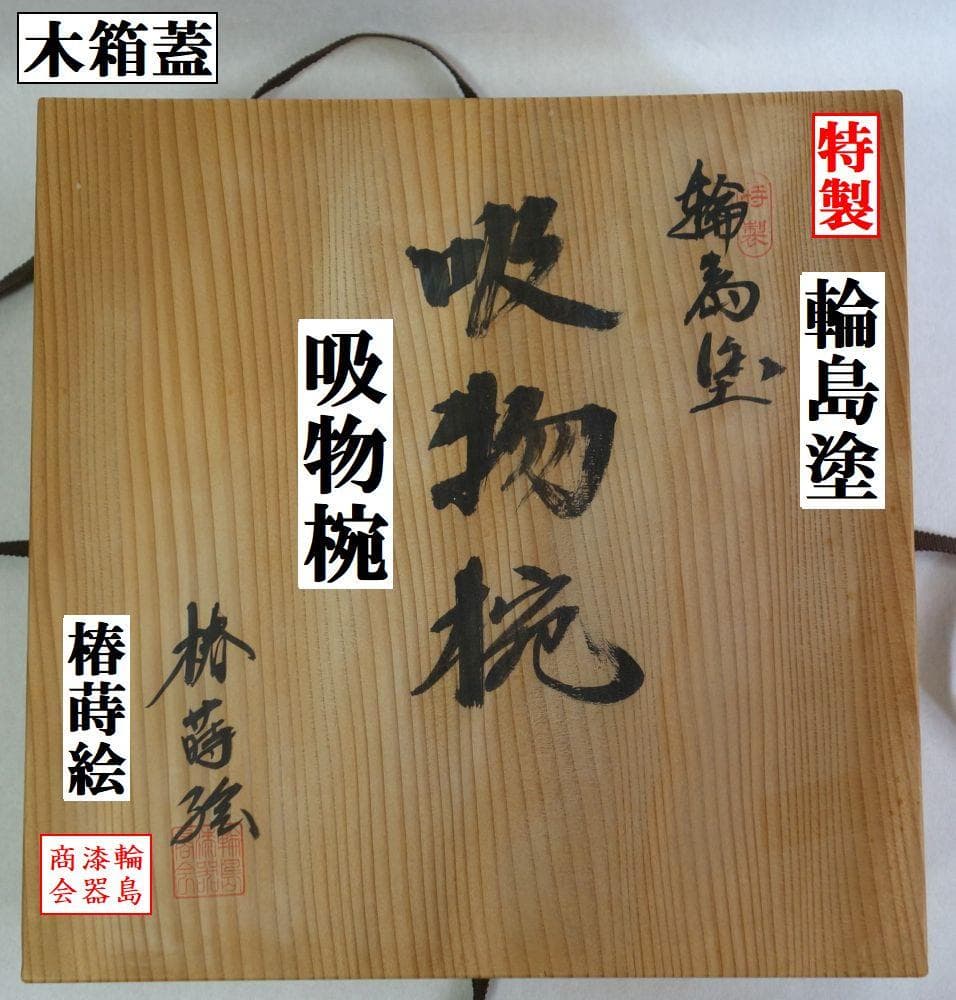 木箱蓋
特製
輪島塗
特製
輪島塗
吸物椀
吸物椀
椿蒔絵
椿蒔絵
輪島
漆器
商会
輪島
漆器
商会